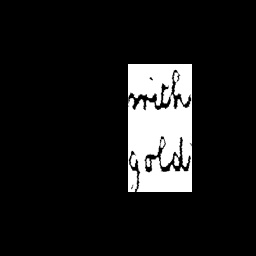 with
gold